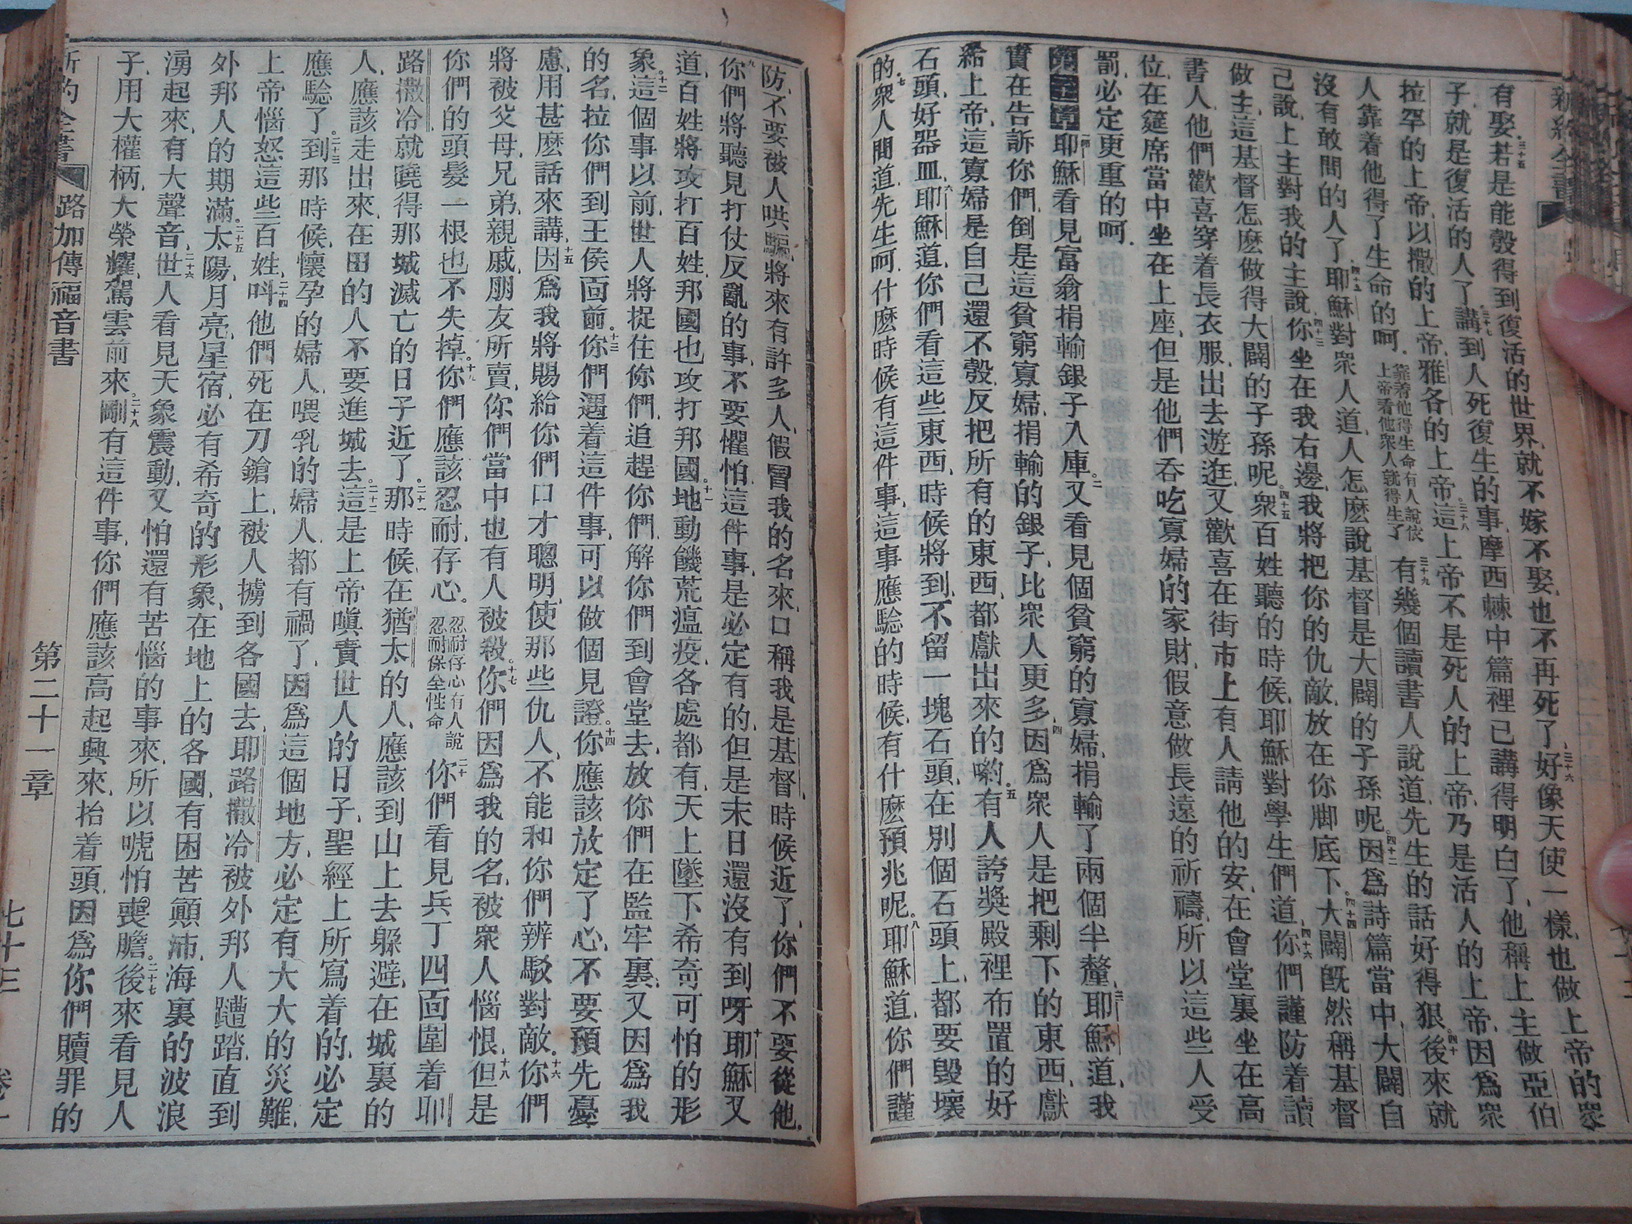 有娶、若是能彀得到復活的世界、就不嫁不娶、也不再死了、好像天使一樣、也做上帝的衆
子、就是復活的人了、講到人死復生的事、摩西棘中篇裡已講得明白了、他稱上主做亞伯
拉罕的上帝、以撒的上帝、雅各的上帝、這上帝不是死人的上帝、乃是活人的上帝、因爲衆
人靠着他得了生命的呵、靠着他得生命有人說 上帝看他衆人就得生了 有幾個讀書人說道、先生的話好得狠、後來就
沒有敢問的人了、耶穌對衆人道、人怎麽說基督是大闢的子孫呢、因爲詩篇當中、大闢自
己說、上主對我的主說、你坐在我右邊、我將把你的仇敵、放在你脚底下、大闢旣然稱基督
做主、這基督怎麽做得大闢的子孫呢、衆百姓聽的時候、耶穌對學生們道、你們謹防着讀
書人、他們歡喜穿着長衣服、出去遊逛、又歡喜在街市上有人請他的安、在會堂裏坐在高
位、在筵席當中坐在上座、但是他們吞吃寡婦的家財、假意做長遠的祈禱、所以這些人受
罰、必定更重的呵、
耶穌看見富翁捐輸銀子入庫、又看見個貧窮的寡婦、捐輸了兩個半釐、耶穌道、我
實在告訴你們、倒是這貧窮寡婦、捐輸的銀子、比衆人更多、因爲衆人是把剩下的東西、獻
給上帝、這寡婦是自己還不彀、反把所有的東西、都獻出來的喲、有人誇獎殿裡布置的好
石頭、好器皿、耶穌道、你們看這些東西、時候將到、不留一塊石頭、在別個石頭上、都要毀壞
的、衆人問道、先生呵、什麽時候有這件事、這事應驗的時候、有什麽預兆呢、耶穌道、你們謹
防、不要被人哄騙、將來有許多人、假冒我的名來、口稱我是基督、時候近了、你們不要從他、
你們將聽見打仗反亂的事、不要懼怕、這件事、是必定有的、但是末日還沒有到呀、耶穌又
道、百姓將攻打百姓、邦國也攻打邦國、地動饑荒瘟疫、各處都有、天上墜下希奇可怕的形
象、這個事以前、世人將捉住你們、追趕你們、解你們到會堂去、放你們在監牢裏、又因爲我
的名、拉你們到王侯面前、你們遇着這件事、可以做個見證、你應該放定了心、不要預先憂
慮、用甚麽話來講、因爲我將賜給你們口才聰明、使那些仇人、不能和你們辨駁對敵、你們
將被父母兄弟、親戚朋友所賣、你們當中也有人被殺、你們因爲我的名、被衆人惱恨、但是
你們的頭髮、一根也不失掉、你們應該忍耐存心、忍耐存心有人說 忍耐保全性命 你們看見兵丁四面圍着耶
路撒冷、就曉得那城滅亡的日子近了、那時候、在猶太的人、應該到山上去躱避、在城裏的
人、應該走出來、在田的人、不要進城去、這是上帝嗔責世人的日子、聖經上所寫着的、必定
應驗了、到那時候、懷孕的婦人、喂乳的婦人、都有禍了、因爲這個地方、必定有大大的災難、
上帝惱怒這些百姓、呌他們死在刀鎗上、被人擄到各國去、耶路撒冷、被外邦人蹧踏、直到
外邦人的期滿、太陽月亮星宿、必有希奇的形象、在地上的各國、有困苦顚沛、海裏的波浪
湧起來、有大聲音、世人看見天象震動、又怕還有苦惱的事來、所以唬怕喪膽、後來看見人
子、用大權柄、大榮耀、駕雲前來、剛有這件事、你們應該高起興來、抬着頭、因爲你們贖罪的
新約全書 路加傳福音書 第二十一章 七十三